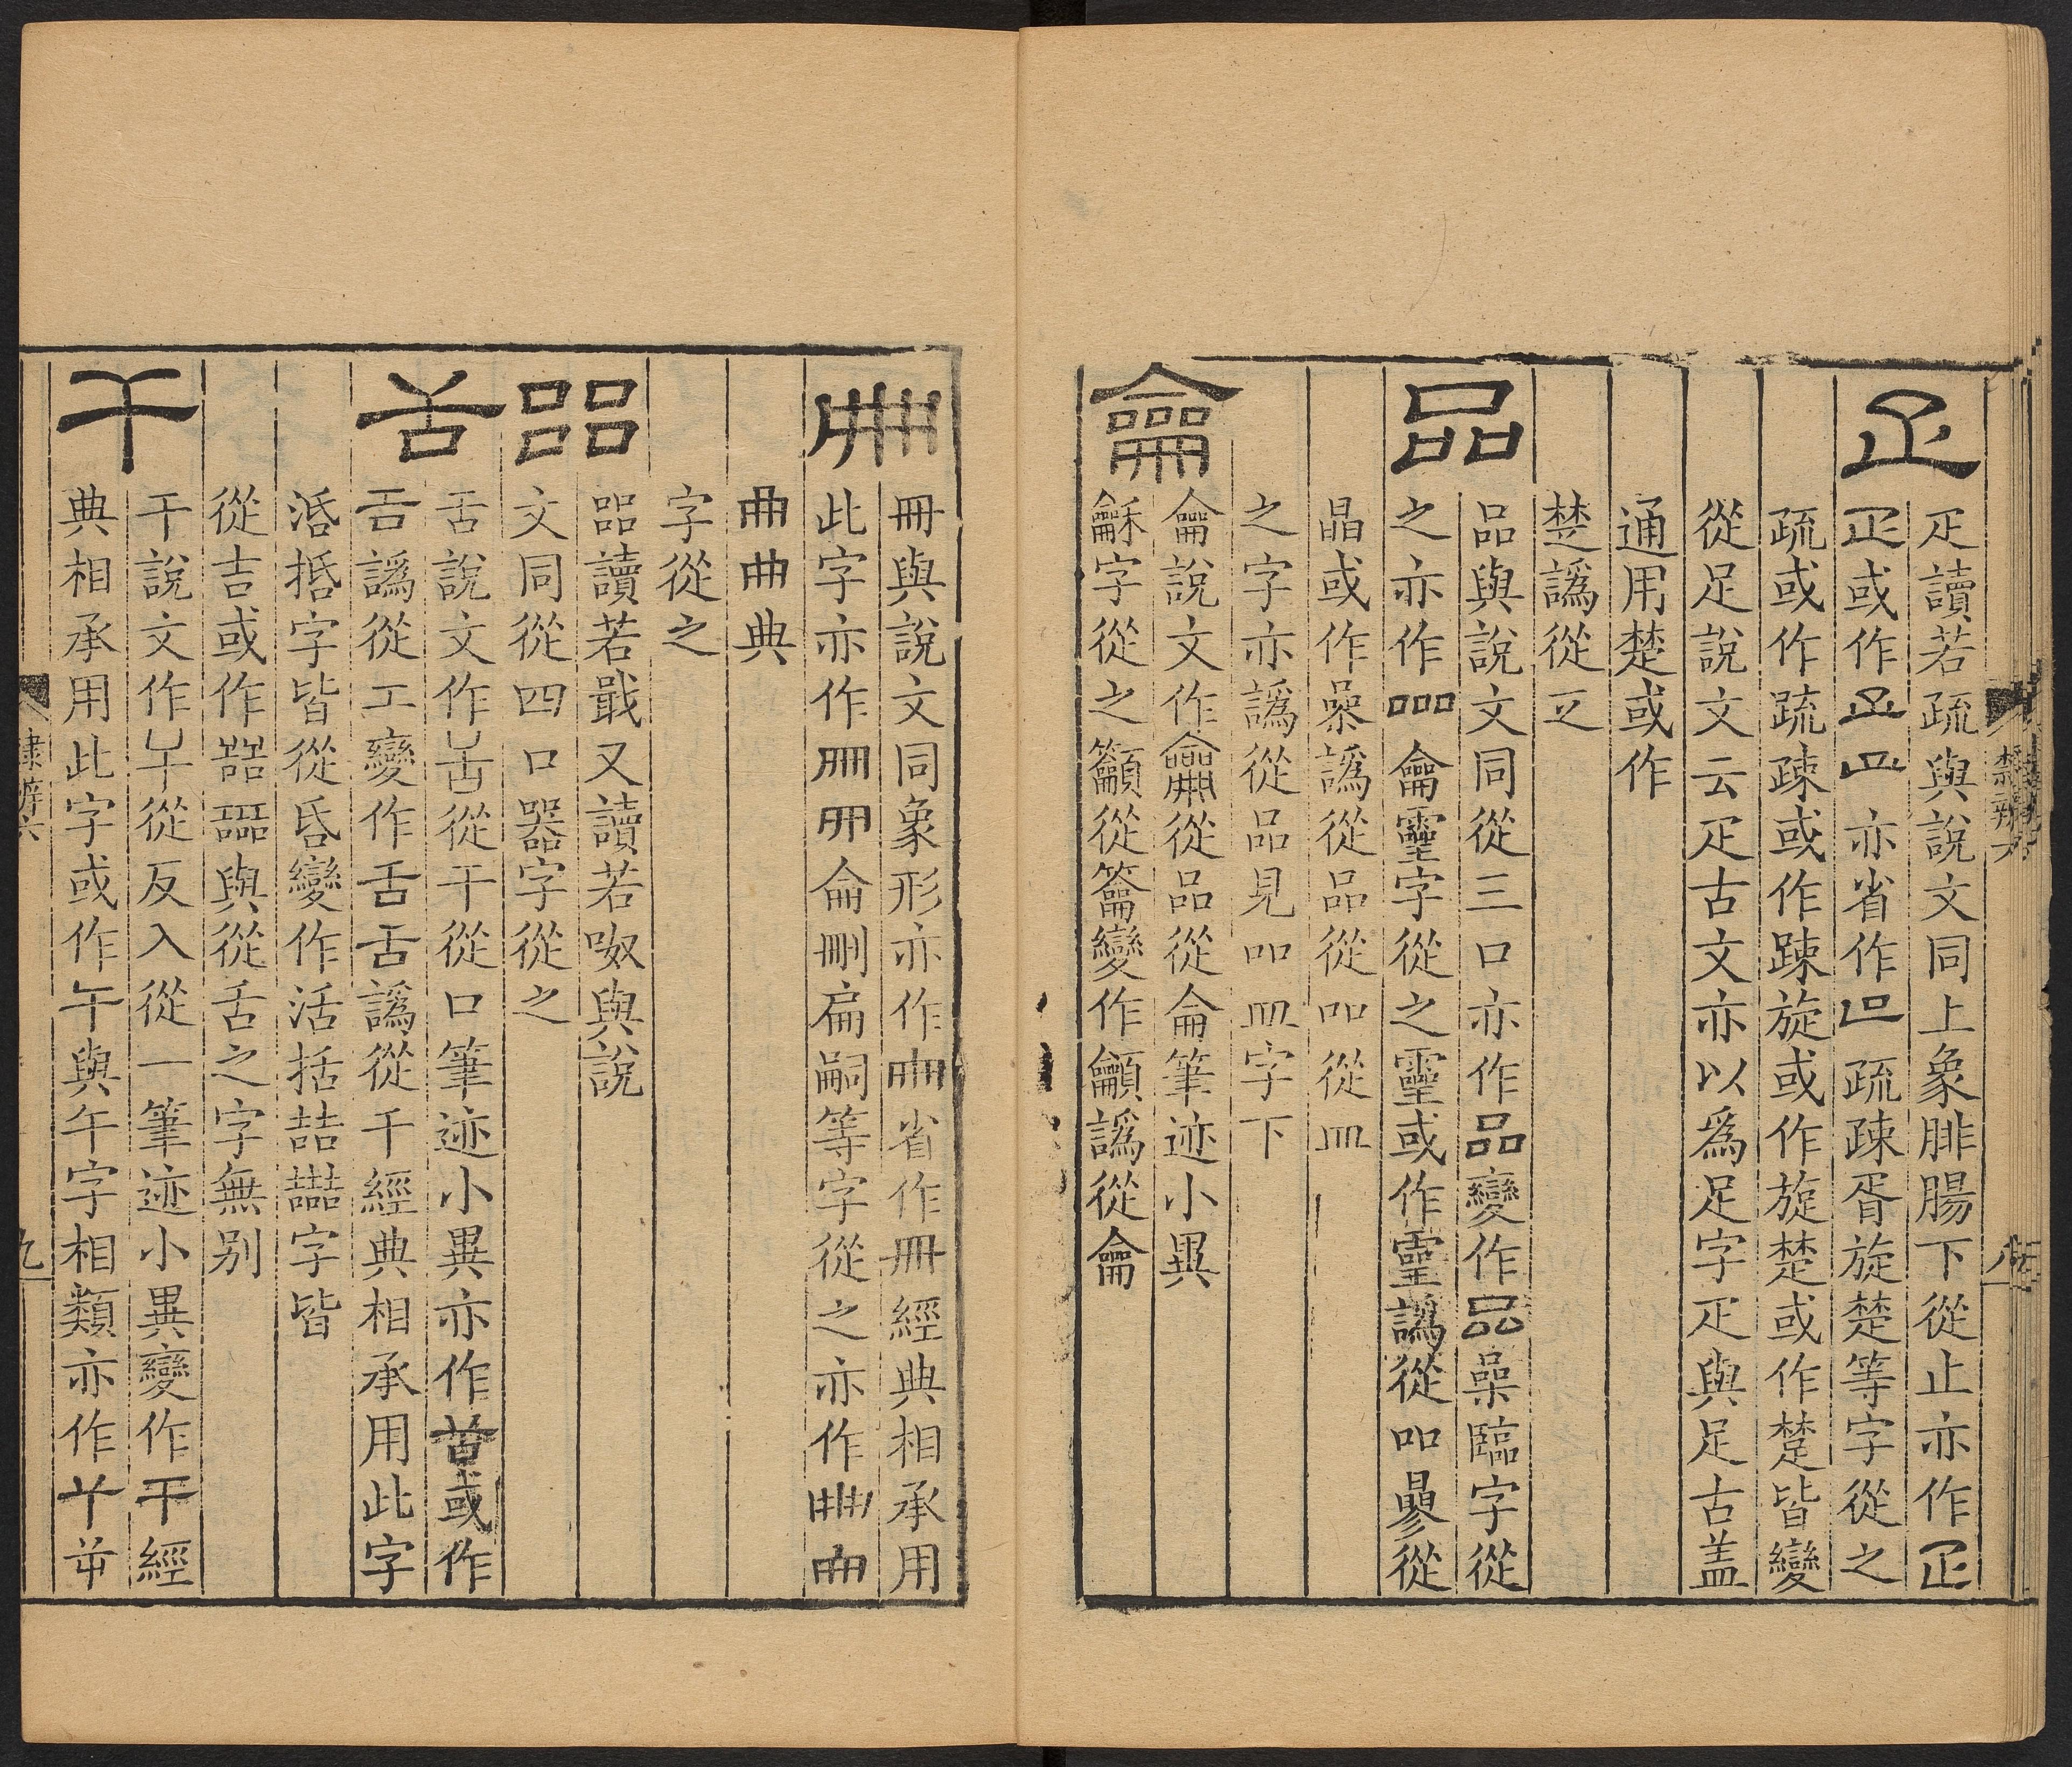 疋
疋讀若疏與說文同上象腓腸下從止亦作
或作 亦省作 疏疎胥旋楚等字從之
疏或作疏踈或作踈旋或作旋楚或作楚皆變
從足說文云疋古文亦以爲足字疋與足古盖
通用楚或作
楚譌從
品
品與說文同從三口亦作品變作 喿臨字從
之亦作 龠靈字從之靈或作靈譌從吅曑從
晶或作喿譌從品從吅從
之字亦譌從品見吅 字下
龠
龠說文作龠從品從侖筆迹小異
龢字從之籲從籥變作龥譌從龠
冊
冊與說文同象形亦作 省作冊經典相承用
此字亦作 侖刪扁嗣等字從之亦作
典
字從之
㗊
㗊讀若戢又讀若呶與說
文同從四口器字從之
舌
舌說文作 從干從口筆迹小異亦作 或作
譌從工變作舌舌譌從千經典相承用此字
湉 字皆從昏變作活括喆嚞字皆
從吉或作 與從舌之字無别
干
干說文作 從反入從一筆迹小異變作干經
典相承用此字或作午與午字相類亦作
隸辨六
九